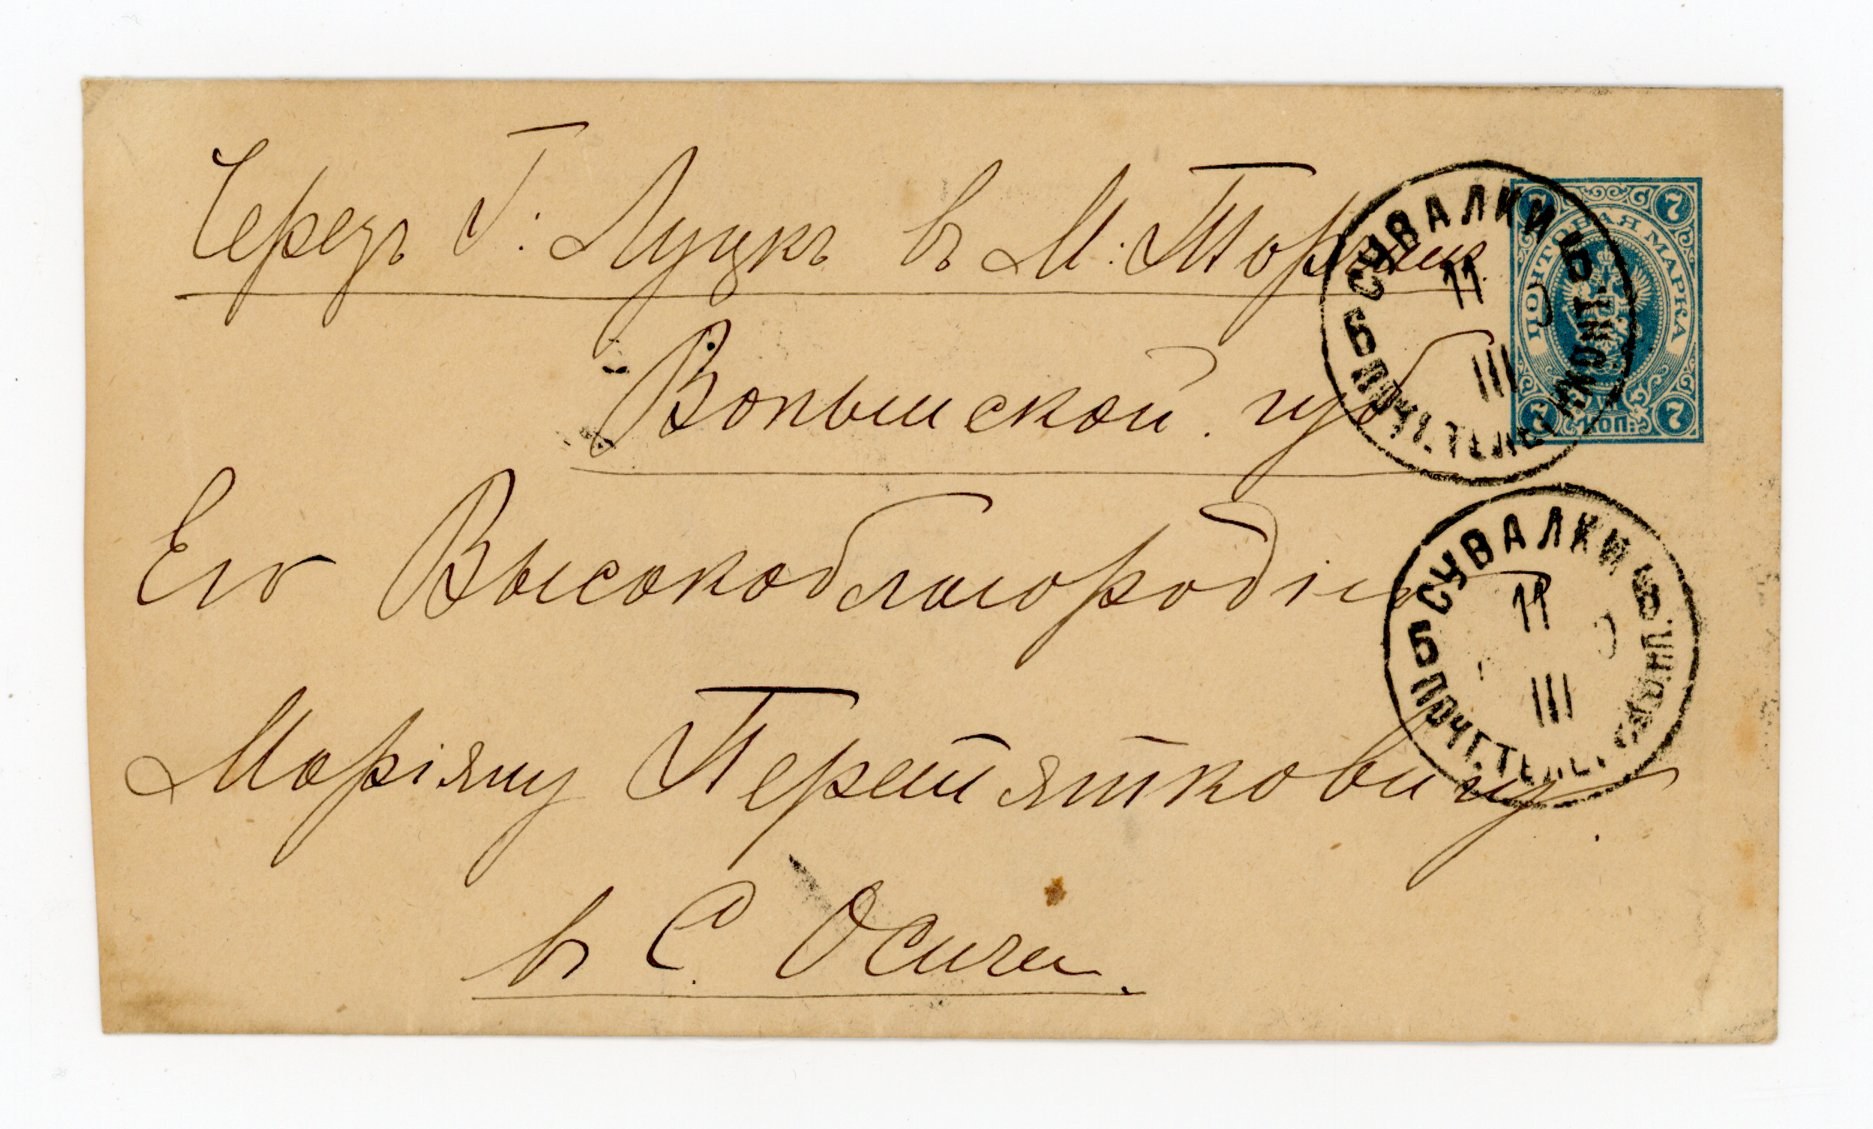 Черезъ Г: Луцкъ въ М: Торчин
Волынской губ
Его Высокоблагородію
Маріяну Перетятковичу
в С. Осичи.
7 7
ПОЧТОВАЯ МАРКА
7 КОП. 7
СУВАЛКИ
Б Б
11
III
ПОЧТ. ТЕЛЕГ. КОНТ.
СУВАЛКИ
Б Б
11
III
ПОЧТ. ТЕЛЕГ. КОНТ.